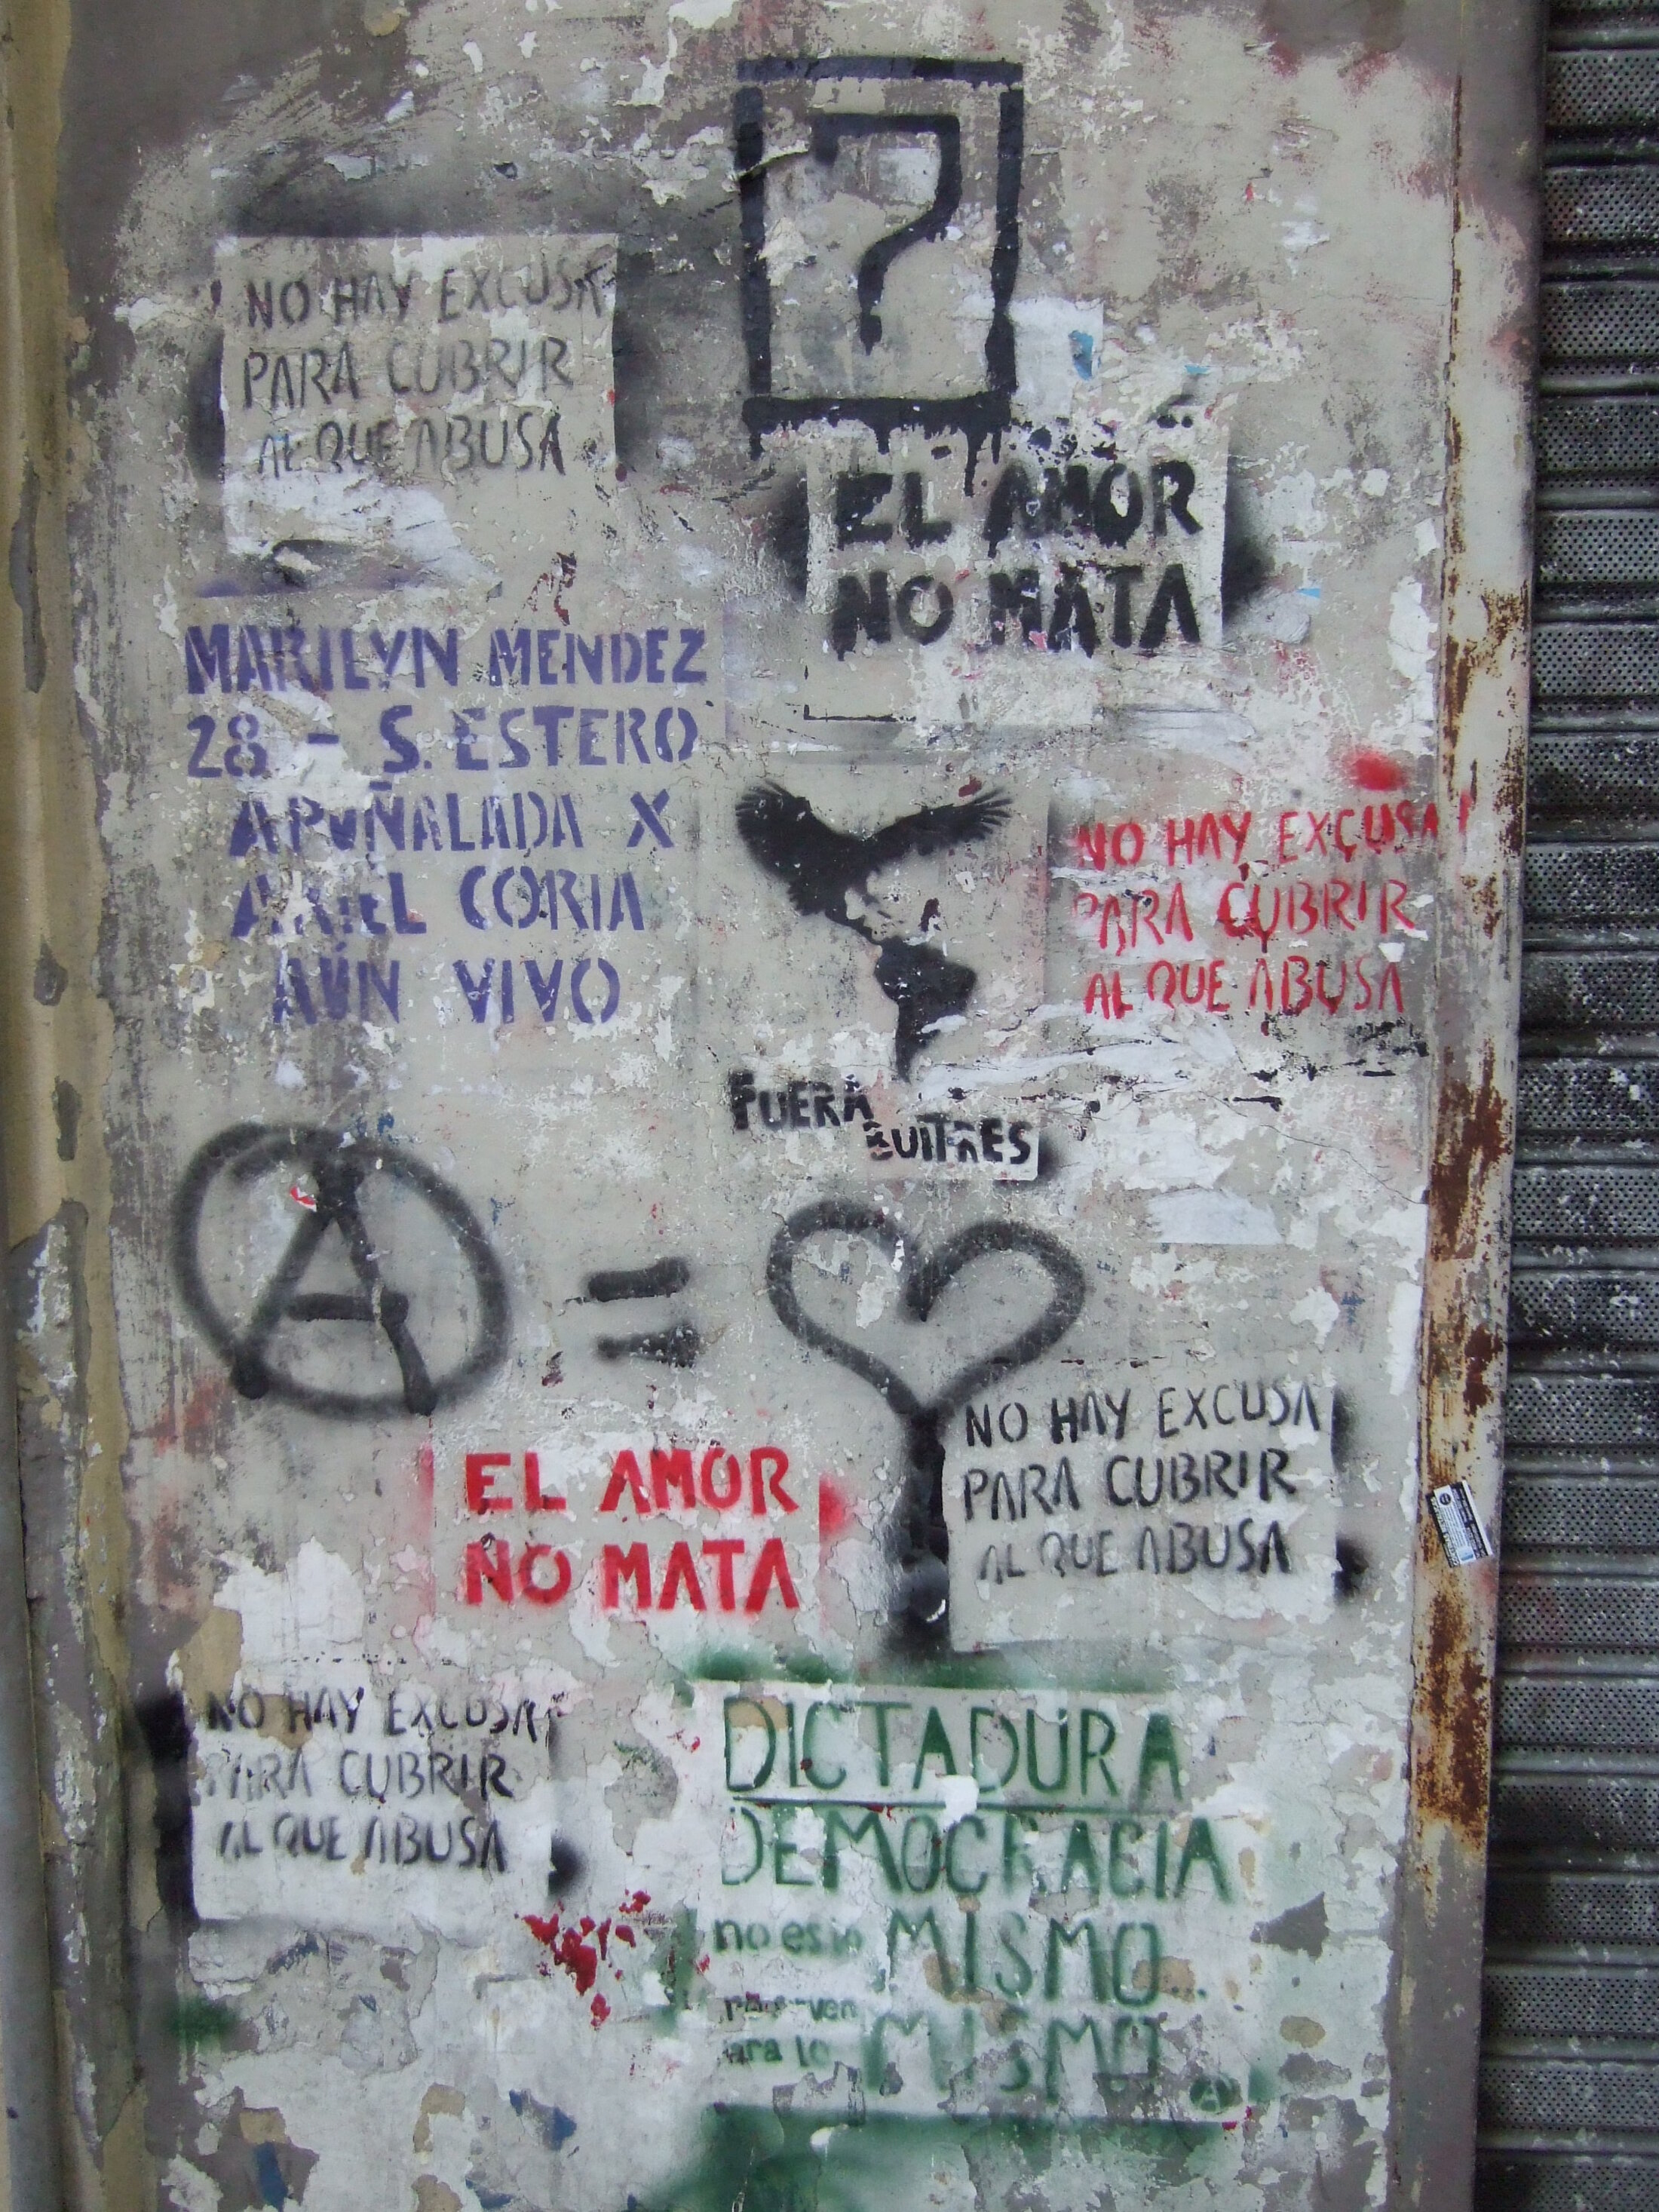 ?
NO HAY EXCUSA
PARA CUBRIR
AL QUE ABUSA
EL AMOR
NO MATA
MARILYN MENDEZ
28 - S. ESTERO
APUÑALADA X
ARIEL CORIA
AÚN VIVO
NO HAY EXCUSA
PARA CUBRIR
AL QUE ABUSA
FUERA
BUITRES
A =
NO HAY EXCUSA
PARA CUBRIR
AL QUE ABUSA
EL AMOR
NO MATA
NO HAY EXCUSA
PARA CUBRIR
AL QUE ABUSA
DICTADURA
DEMOCRACIA
no es lo MISMO
MISMO
A